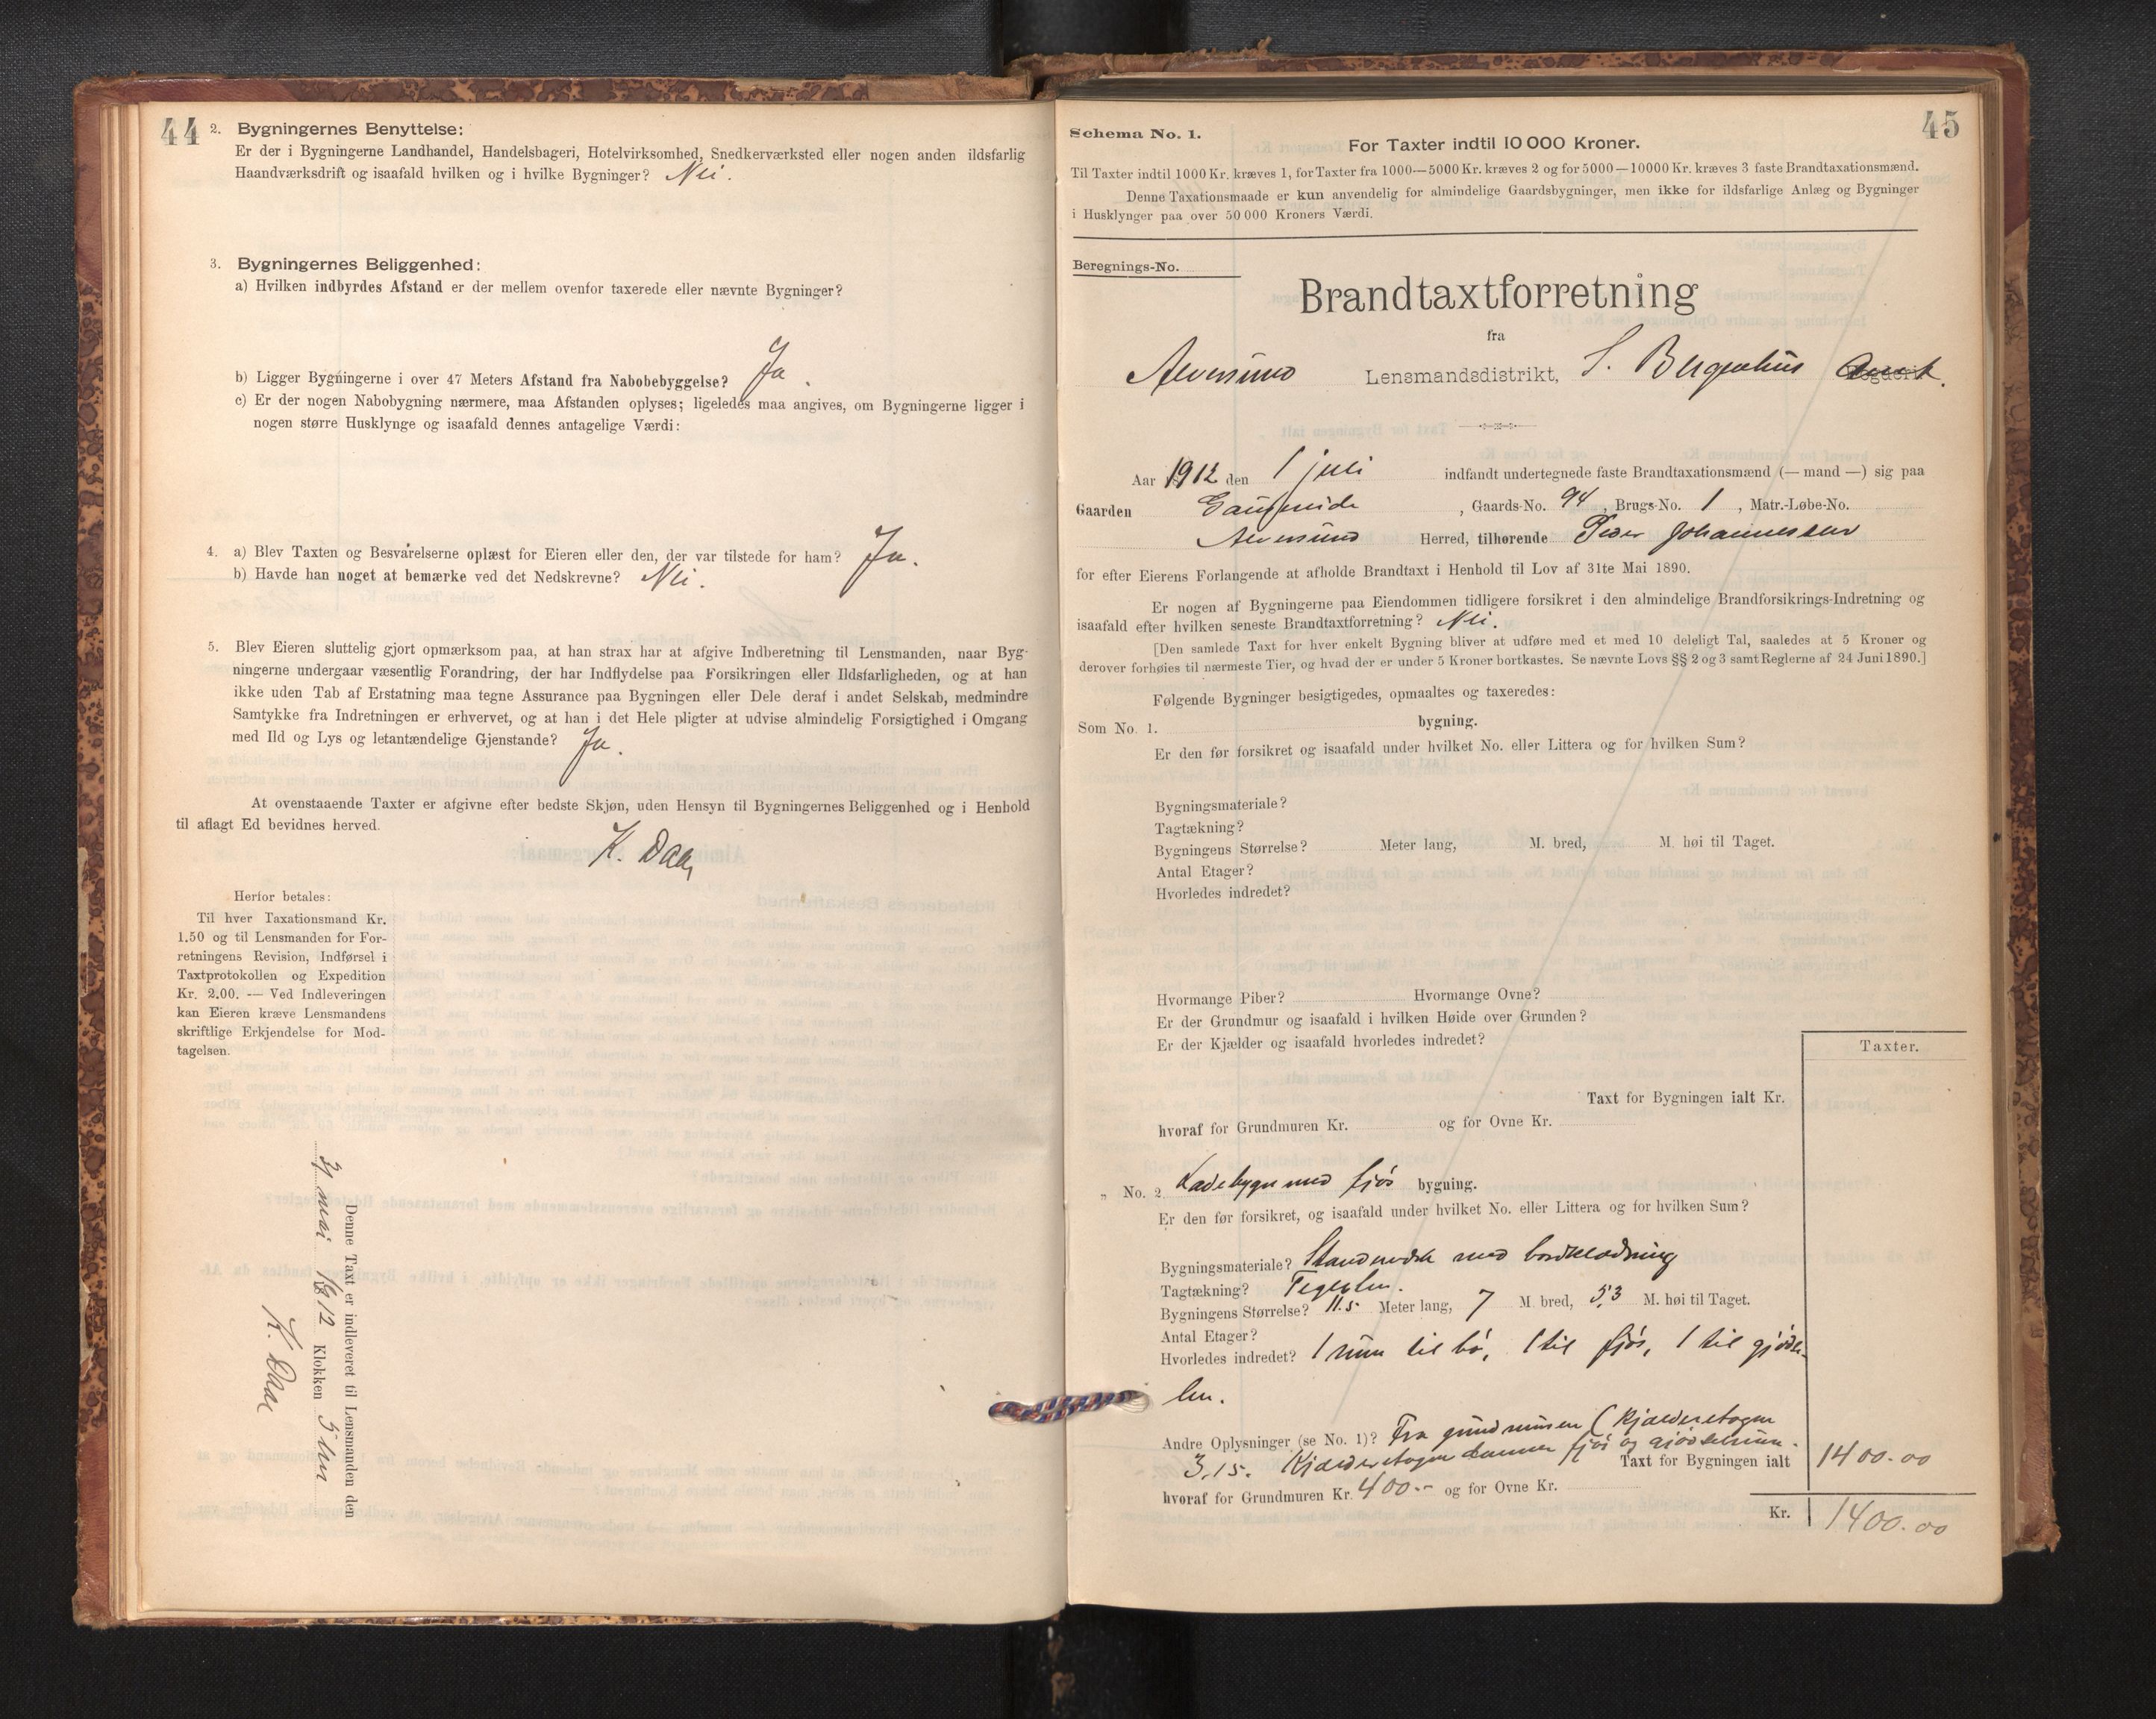 44
2. Bygningernes Benyttelse:
Er der i Bygningerne Landhandel, Handelsbageri, Hotelvirksomhed, Snedkerværksted eller nogen anden ildsfarlig
Haandværksdrift og isaafald hvilken og i hvilke Bygninger? Nei.
3. Bygningernes Beliggenhed:
a) Hvilken indbyrdes Afstand er der mellem ovenfor taxerede eller nævnte Bygninger?
b) Ligger Bygningerne i over 47 Meters Afstand fra Nabobebyggelse? Ja.
c) Er der nogen Nabobygning nærmere, maa Afstanden oplyses; ligeledes maa angives, om Bygningerne ligger i
nogen større Husklynge og isaafald dennes antagelige Værdi:
4. a) Blev Taxten og Besvarelserne oplæst for Eieren eller den, der var tilstede for ham? Ja.
b) Havde han noget at bemærke ved det Nedskrevne? Nei.
5. Blev Eieren sluttelig gjort opmærksom paa, at han strax har at afgive Indberetning til Lensmanden, naar Byg-
ningerne undergaar væsentlig Forandring, der har Indflydelse paa Forsikringen eller Ildsfarligheden, og at han
ikke uden Tab af Erstatning maa tegne Assurance paa Bygningen eller Dele deraf i andet Selskab, medmindre
Samtykke fra Indretningen er erhvervet, og at han i det Hele pligter at udvise almindelig Forsigtighed i Omgang
med Ild og Lys og letantændelige Gjenstande? Ja.
At ovenstaaende Taxter er afgivne efter bedste Skjøn, uden Hensyn til Bygningernes Beliggenhed og i Henhold
til aflagt Ed bevidnes herved.
K. Daae
Herfor betales:
Til hver Taxationsmand Kr.
1.50 og til Lensmanden for For-
retningens Revision, Indførsel i
Taxtprotokollen og Expedition
Kr. 2.00. — Ved Indleveringen
kan Eieren kræve Lensmandens
skriftlige Erkjendelse for Mod-
tagelsen.
Denne Taxt er indleveret til Lensmanden den
31 mai 1912 Klokken 5
K. Daae
45
Schema No. 1.
For Taxter indtil 10 000 Kroner.
Til Taxter indtil 1000 Kr. kræves 1, for Taxter fra 1000—5000 Kr. kræves 2 og for 5000—10000 Kr. kræves 3 faste Brandtaxationsmænd.
Denne Taxationsmaade er kun anvendelig for almindelige Gaardsbygninger, men ikke for ildsfarlige Anlæg og Bygninger
i Husklynger paa over 50 000 Kroners Værdi.
Beregnings-No.
Brandtaxtforretning
fra
Alversund Lensmandsdistrikt, S. Bergenhus Amt.
Aar 1912 den 1 juli indfandt undertegnede faste Brandtaxationsmænd (— mand —) sig paa
Gaarden , Gaards-No. 94, Brugs-No. 1, Matr.-Løbe-No.
Alversund Herred, tilhørende Peder Johannessen
for efter Eierens Forlangende at afholde Brandtaxt i Henhold til Lov af 31te Mai 1890.
Er nogen af Bygningerne paa Eiendommen tidligere forsikret i den almindelige Brandforsikrings-Indretning og
isaafald efter hvilken seneste Brandtaxtforretning? Nei.
[Den samlede Taxt for hver enkelt Bygning bliver at udføre med et med 10 deleligt Tal, saaledes at 5 Kroner og
derover forhøies til nærmeste Tier, og hvad der er under 5 Kroner bortkastes. Se nævnte Lovs §§ 2 og 3 samt Reglerne af 24 Juni 1890.]
Følgende Bygninger besigtigedes, opmaaltes og taxeredes:
Som No. 1. bygning.
Er den før forsikret og isaafald under hvilket No. eller Littera og for hvilken Sum?
Bygningsmateriale?
Tagtækning?
Bygningens Størrelse? Meter lang, M. bred, M. høi til Taget.
Antal Etager?
Hvorledes indredet?
Hvormange Piber? Hvormange Ovne?
Er der Grundmur og isaafald i hvilken Høide over Grunden?
Er der Kjælder og isaafald hvorledes indredet?
Taxter.
Taxt for Bygningen ialt Kr.
hvoraf for Grundmuren Kr. og for Ovne Kr.
„ No. 2 Ladebygn med fjøs bygning.
Er den før forsikret, og isaafald under hvilket No. eller Littera og for hvilken Sum?
Bygningsmateriale? Standverk med bordklædning
Tagtækning? Teglsten.
Bygningens Størrelse? 11.5 Meter lang, 7 M. bred, 5.3 M. høi til Taget.
Antal Etager?
Hvorledes indredet? 1 rum til hø, 1 til fjøs, 1 til gjøds-
len.
Andre Oplysninger (se No. 1)? Fra grundmuren (Kjælderetagen
3.15. Kjælderetagen danner fjøs og gjødselrum.
Taxt for Bygningen ialt 1400.00
hvoraf for Grundmuren Kr. 400.- og for Ovne Kr.
Kr. 1400.00